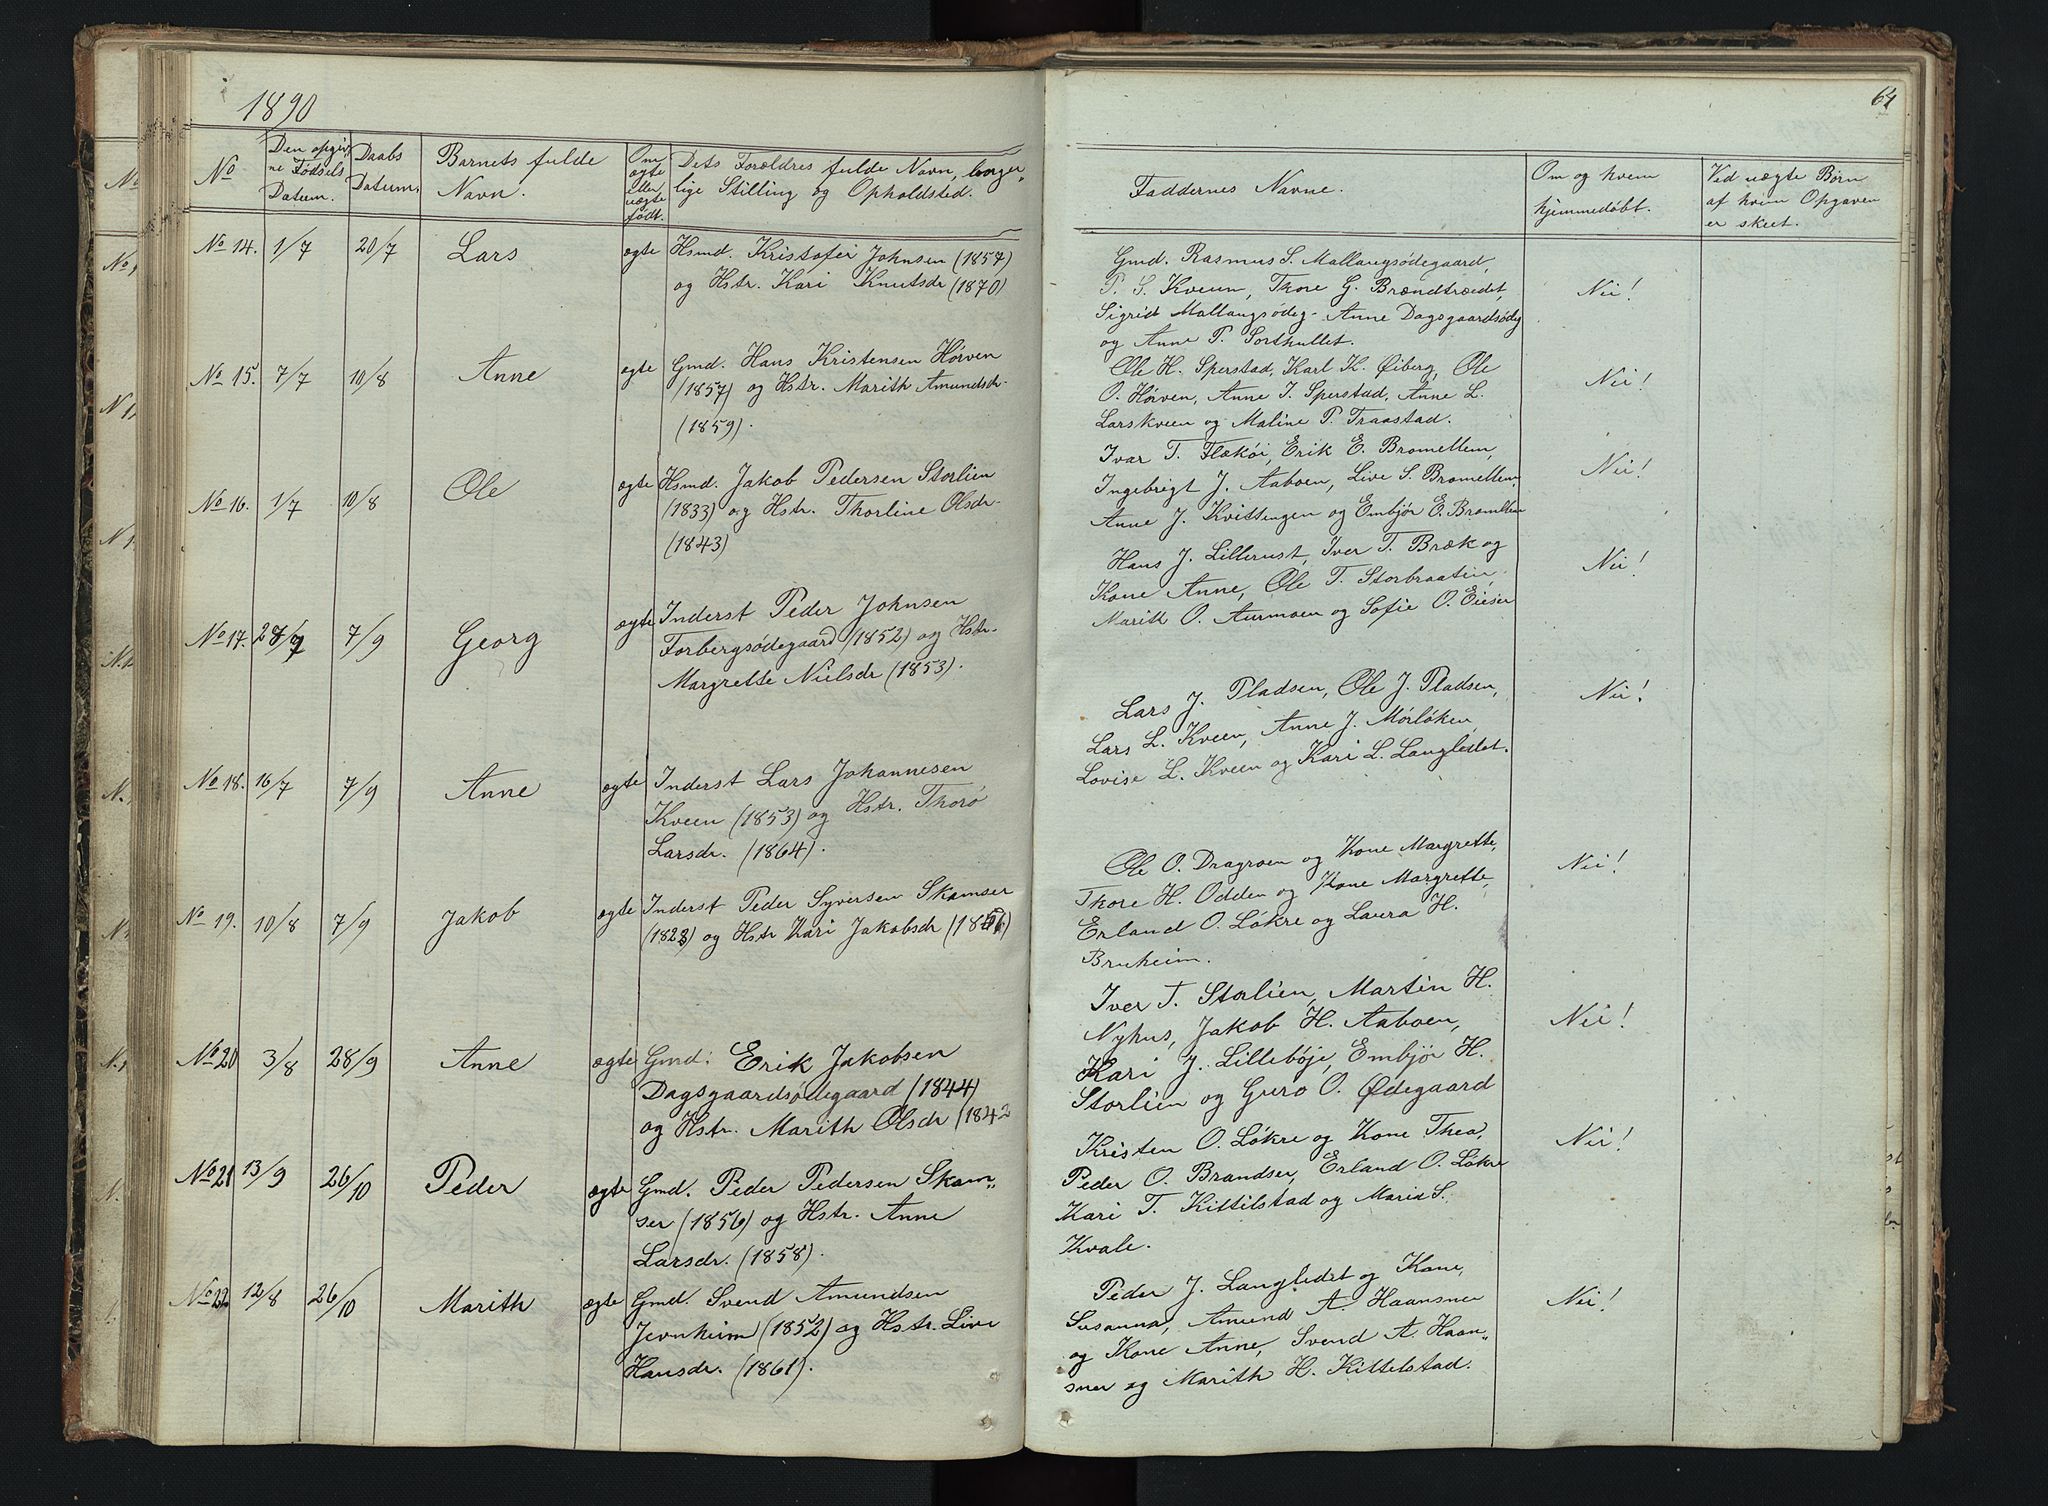 1890
No
Den opgiv,,
ne Fødsels
Datum.
Daabs
Datum.
Barnets fulde
Navn.
Om
ægte
eller
uægte
født.
Dets Forældres fulde Navn, borger,,
lige Stilling og Opholdsted.
No 14. 1/7 20/7 Lars ægte Hsmd. Kristofer Johnsen (1857)
og Hstr. Kari Knutsdr (1870)
No 15. 7/7 10/8 Anne ægte Gmd. Hans Kristensen Hørven
(1857) og Hstr. Marith Amundsdr.
(1859).
No 16. 1/7 10/8 Ole ægte Hsmd. Jakob Pedersen Storlien
(1833) og Hstr. Thorline Olsdr.
(1843)
No 17. 28/7 7/9 Georg ægte Inderst Peder Johnsen
Forbergsødegaard (1852) og Hstr.
Margrette Nielsdr (1853).
No 18. 16/7 7/9 Anne ægte Inderst Lars Johannesen
Kveen (1853) og Hstr. Thorø
Larsdr. (1864).
No 19. 10/8 7/9 Jakob ægte Inderst Peder Syversen Skamser
(1823) og Hstr Kari Jakobsdr
No 20 3/8 28/9 Anne ægte Gmd. Erik Jakobsen
Dagsgaardsødegaard (1844)
og Hstr. Marith Olsdr (1842
No 21 13/9 26/10 Peder ægte Gmd. Peder Pedersen Skam,,
ser (1856) og Hstr. Anne
Larsdr. (1858).
No 22 12/8 26/10 Marith ægte Gmd. Svend Amundsen
Jevnheim (1852) og Hstr. Live
Hansdr. (1861).
64
Faddernes Navne.
Om og hvem
hjemmedøbt.
Ved uægte Børn
af hvem Opgaven
er skeet.
Gmd. Rasmus S. Mallangsødegaard,
P. S. Kveen, Thore G. Brændtrædet,
Sigrid Mallangsødeg- Anne Dagsgaardsødeg
og Anne P. Sorthullet.
Nei!
Ole H. Sperstad, Karl K. Øiberg, Ole
O. Hørven, Anne I. Sperstad, Anne L.
Larskveen og Maline P. Traastad.
Nei!
Ivar T. Flækøi, Erik E. Bromellem,
Ingebrigt J. Aaboen, Live S. Bromellem,
Anne J. Kvittingen og Embjør E. Bromellem
Nei!
Hans J. Lillerust, Iver T. Bræk og
Kone Anne, Ole T. Storbraaten,
Marith O. Aurmoen og Sofie O. Eieser
Nei!
Lars J. Pladsen, Ole J. Pladsen,
Lars L. Kveen, Anne J. Mørløken,
Lovise L. Kveen og Kari L. Langledet.
Nei!
Ole O. Dragroen og Kone Margrette,
Thore H. Odden og Kone Margrette,
Erland O. Løkre og Laura H.
Bruheim.
Nei!
Iver T. Storlien, Martin H.
Nyhus, Jakob H. Aaboen,
Kari J. Lillebøje, Embjør H.
Storlien og Guro O. Ødegaard
Nei!
Kristen O. Løkre og Kone Thea,
Peder O. Brandser, Erland O. Løkre
Kari T. Kittilstad og Maria S.
Kvale.
Nei!
Peder J. Langledet og Kone,
Susanna, Amund A. Haansner
og Kone Anne, Svend A. Haan,,
sner og Marith H. Kittelstad.
Nei!